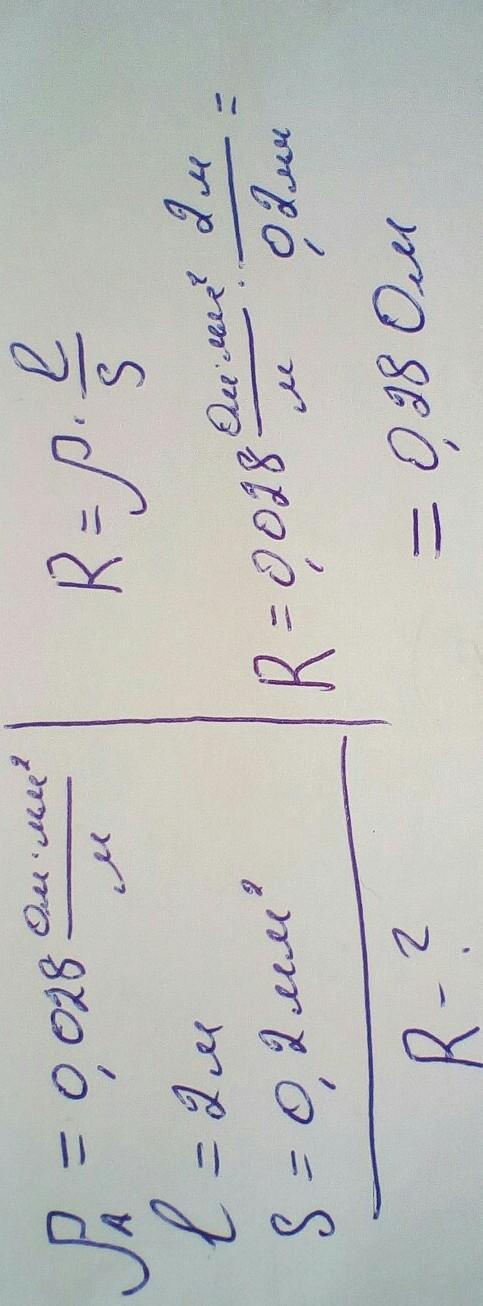 ρ_A = 0,028 Ом·мм²/м
l = 2 м
S = 0,2 мм²
R - ?
R = ρ · l/S
R = 0,028 Ом·мм²/м · 2 м/0,2 мм =
= 0,28 Ом